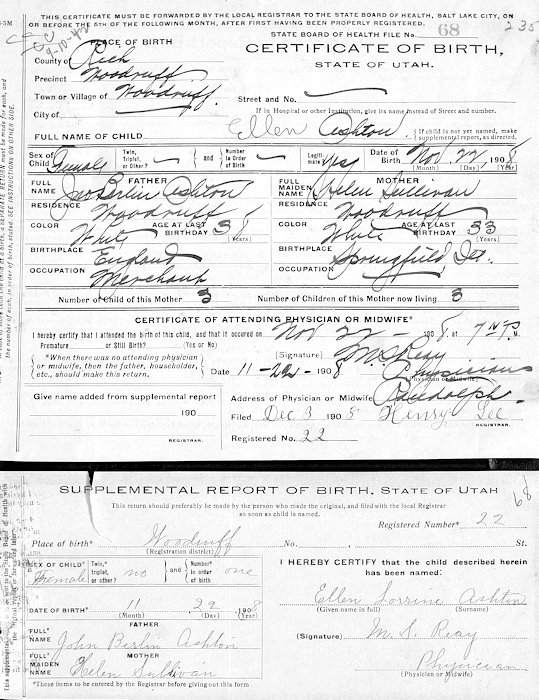 THIS CERTIFICATE MUST BE FORWARDED BY THE LOCAL REGISTRAR TO THE STATE BOARD OF HEALTH, SALT LAKE CITY, ON
OR BEFORE THE 5TH OF THE FOLLOWING MONTH, AFTER FIRST HAVING BEEN PROPERLY REGISTERED.
STATE BOARD OF HEALTH FILE No. 68
235
9-10-42
PLACE OF BIRTH
CERTIFICATE OF BIRTH,
STATE OF UTAH.
County of Rich
Precinct Woodruff
Town or Village of Woodruff
Street and No.
City of
If in Hospital or other Institution, give its name instead of Street and number.
FULL NAME OF CHILD Ellen Ashton
{ If child is not yet named, make supplemental report, as directed.
Sex of Child Female
Twin, Triplet, or Other?
and
Number in Order of Birth
Legitimate? Yes
Date of Birth Nov 22, 1908
(Month) (Day) (Year)
FATHER
FULL NAME Jno Berlin Ashton
RESIDENCE Woodruff
COLOR White
AGE AT LAST BIRTHDAY 38 (Years)
BIRTHPLACE England
OCCUPATION Merchant
MOTHER
FULL MAIDEN NAME Helen Sullivan
RESIDENCE Woodruff
COLOR White
AGE AT LAST BIRTHDAY 33 (Years)
BIRTHPLACE Springfield
OCCUPATION
Number of Child of this Mother 3
Number of Children of this Mother now living 3
CERTIFICATE OF ATTENDING PHYSICIAN OR MIDWIFE*
I hereby certify that I attended the birth of this child, and that it occurred on Nov 22 - 1908 at 7
Premature or Still Birth? (Yes or No)
{ *When there was no attending physician or midwife, then the father, householder, etc., should make this return. }
[Signature] M. S. Reay
Physician
(Physician or Midwife)
Date 11-22-1908
Given name added from supplemental report
190
REGISTRAR.
Address of Physician or Midwife Randolph
Filed Dec 3 1908 Henry Lee
REGISTRAR.
Registered No. 22
SUPPLEMENTAL REPORT OF BIRTH, STATE OF UTAH
68
This return should preferably be made by the person who made the original, and filed with the local Registrar
as soon as child is named.
Registered Number* 22
Place of birth* Woodruff
(Registration district)
No. St.
SEX OF CHILD* Female
Twin, triplet, or other? no
and
Number* in order of birth one
I HEREBY CERTIFY that the child described herein
has been named:
DATE OF BIRTH* 11 22 1908
(Month) (Day) (Year)
Ellen Lorrine Ashton
(Given name in full) (Surname)
FATHER
FULL* NAME John Berlin Ashton
(Signature) M. S. Reay
MOTHER
FULL* MAIDEN NAME Helen Sullivan
Physician
(Physician or Midwife)
*These items to be entered by the Registrar before giving out this form